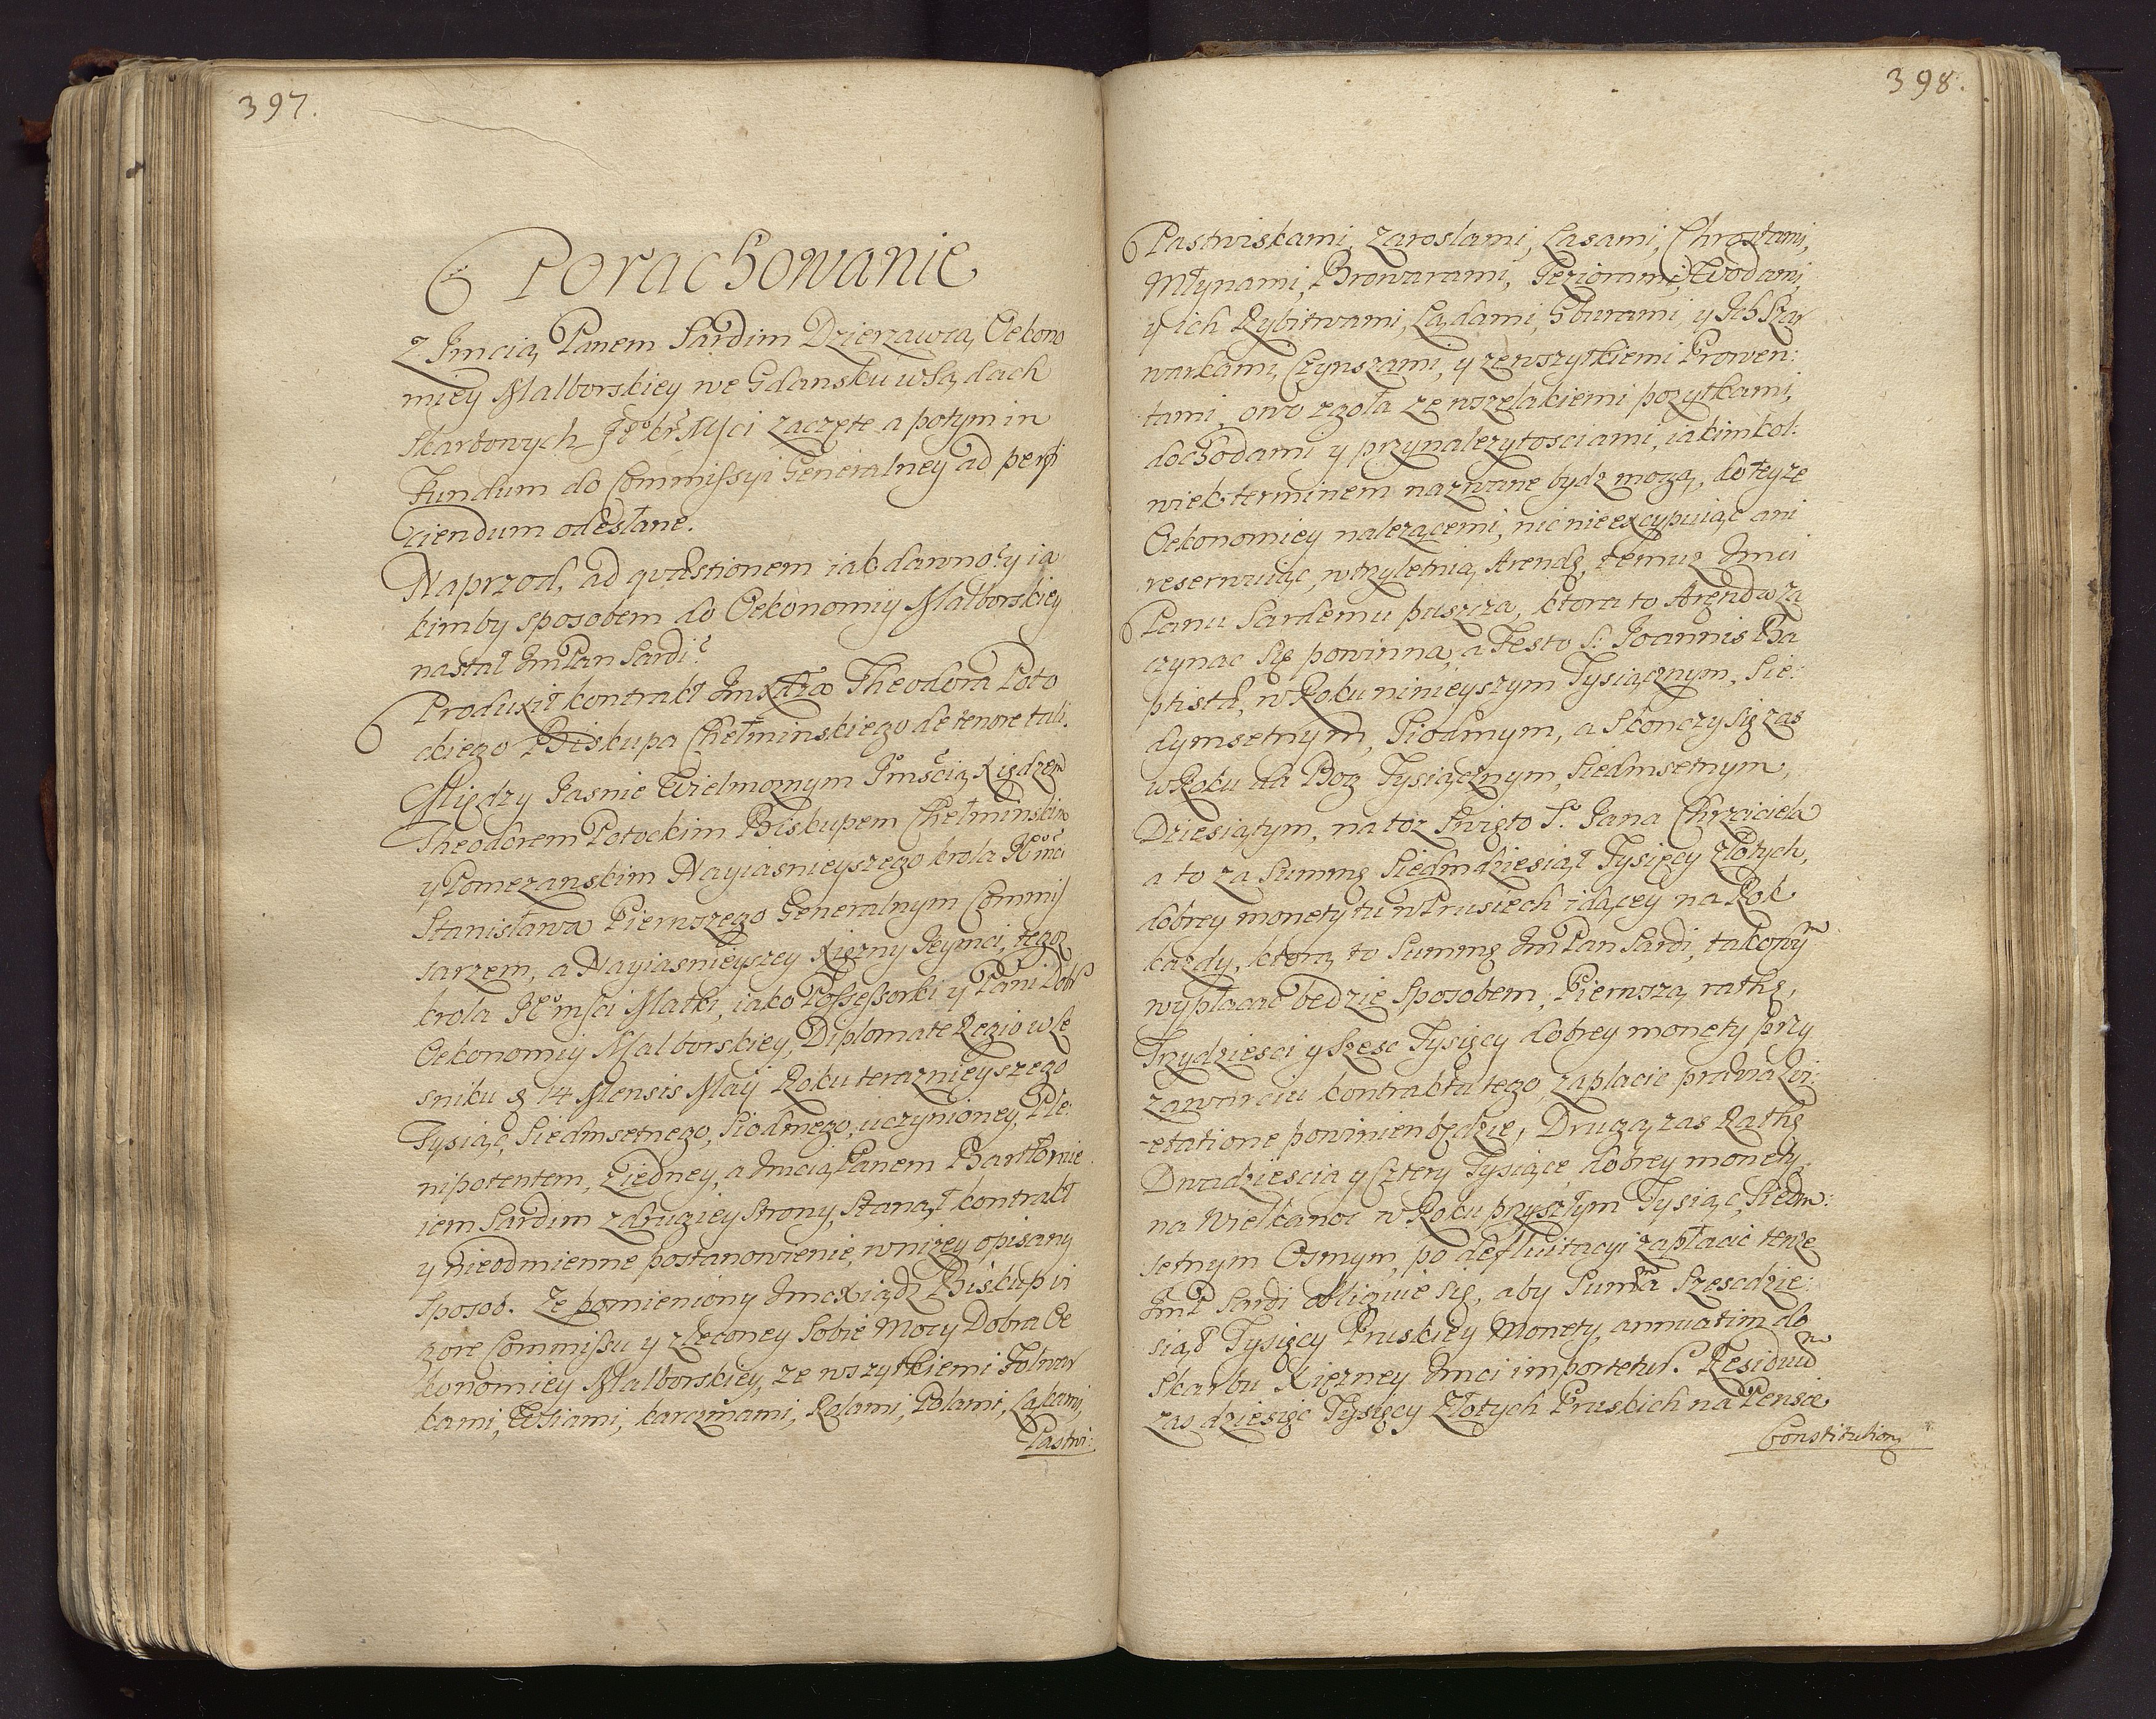 397.
Porachowanie
z Jmcią Panem Sardim Dzierzawcą Oekono
miey Malborskiey we Gdansku w Sądach
Skarbowych J Kr Mci zaczęte a potym in
Fundum do Commissyi Generalney ad perfi
ciendum odesłane.
Naprzod, ad quæstionem iak dawno? y ia
kimby sposobem do Oekonomiy Malborskiey
nastał Jm Pan Sardi?
Produxit kontrakt Jm Xdza Theodora Poto
ckiego Biskupa Chełminskiego de tenore tali.
Między Jasnie Wielmoznym Jmścią Xiędzem
Theodorem Potockim Biskupem Chełminskim
y Pomezanskim Nayiasnieyszego krola JK mci
Stanisława Pierwszego Generalnym Commis
sarzem, a Nayiasnieyszey Xięzny Jeymci, tegoz
krola JK mści Matki, iako Possessorki y Pani Dobr
Oekonomiy Malborskiey, Diplomate Regio w Le
sniku d 14 Mensis Maij Roku teraznieyszego
Tysiąc, Siedmsetnego, Siodmego, uczynioney, Ple:
nipotentem, z iedney, a Jmcią Panem Bartłomie
iem Sardim z drugiey strony, stanął kontrakt
y nieodmienne postanowienie, w nizey opisany
sposob. Ze pomieniony Jmc Xiądz Biskup vi
gore Commissu y zleconey sobie Mocy Dobra Oe
konomiey Malborskiey, ze wszytkiemi Folwar
kami, Wsiami, karczmami, Rolami, Polami, Łąkami,
Pastwi:
398.
Pastwiskami, Zaroslami, Lasami, Chrostami,
Młynami, Browarami, Jeziorami, Wodami,
y ich Rybitwami, Lądami, Gburami, y Ich Szar
warkami, Czynszami, y ze wszytkiemi Prowen:
tami, owo zgoła ze wszelakiemi pozytkami,
dochodami y przynalezytosciami, iakimkol:
wiek terminem nazwane bydz mogą, do teyze
Oekonomiey nalezącemi, nic nie excypuiąc ani
reserwuiąc, w trzyletnią Arendę, temuz Jmci
Panu Sardemu puszcza, ktora to Arenda za
czynac się powinna, a Festo S. Joannis Ba
ptistæ, w Roku ninieyszym Tysiącznym, Sie:
dymsetnym, Siodmym, a skonczy się zas
w Roku da Bog Tysiącznym, Siedmsetnym,
Dziesiątym, na toz Swięto S. Jana Chrzciciela
a to za Summę Siedmdziesiąt Tysięcy złotych,
dobrey monety tu w Prusiech idącey na Rok
kazdy, ktorą to Summę Jm Pan Sardi, takowym
wypłacac będzie sposobem, Pierwszą rathę,
Trzydziesci y szesc Tysięcy dobrey monety przy
zawarciu kontraktu tego, zapłacic prævia Qvi:
etatione powinien będzie, Drugą zas Rathę
Dwadziescia y cztery Tysiące, dobrey monety
na Wielkanoc w Roku przyszłym Tysiąc, Siedm:
setnym Osmym, po defluitacyi zapłacic tenze
Jm P Sardi obliguie się, aby Summa szescdzie:
siąt Tysięcy Pruskiey Monety, annuatim do
Skarbu Xięzney Jmci importetur. Residuum
zas dziesięc Tysięcy Złotych Pruskich na Pensie
Constitution